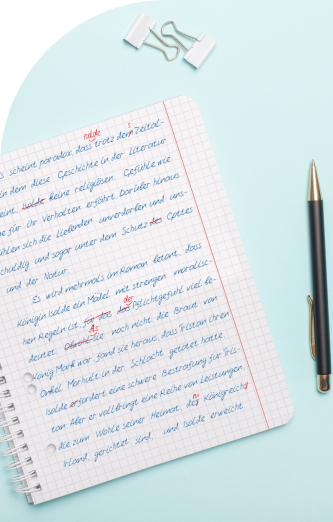 s scheint paradox, dass trotz dem Zeital-
in dem diese Geschichte in der Literatur
eint, Isolde keine religiösen Gefühle wie
e für ihr Verhalten erfährt. Darüber hinaus
ühlen sich die Liebenden unverdorben und uns-
chuldig und sogar unter dem Schutz des Gottes
und der Natur.
Es wird mehrmals im Roman betont, dass
Königin Isolde ein Mädel mit strengen moralisc-
hen Regeln ist, für die das der Pflichtgefühl viel be-
deutet. Obwohl sie als noch nicht die Braut von
König Mark war, fand sie heraus, dass Tristan ihren
Onkel Marhult in der Schlacht getötet hatte.
Isolde erfordert eine schwere Bestrafung für Tris-
tan. Aber er vollbringt eine Reihe von Leistungen,
die zum Wohle seiner Heimat, des Königreich
Irland gerichtet sind, und Isolde erweicht